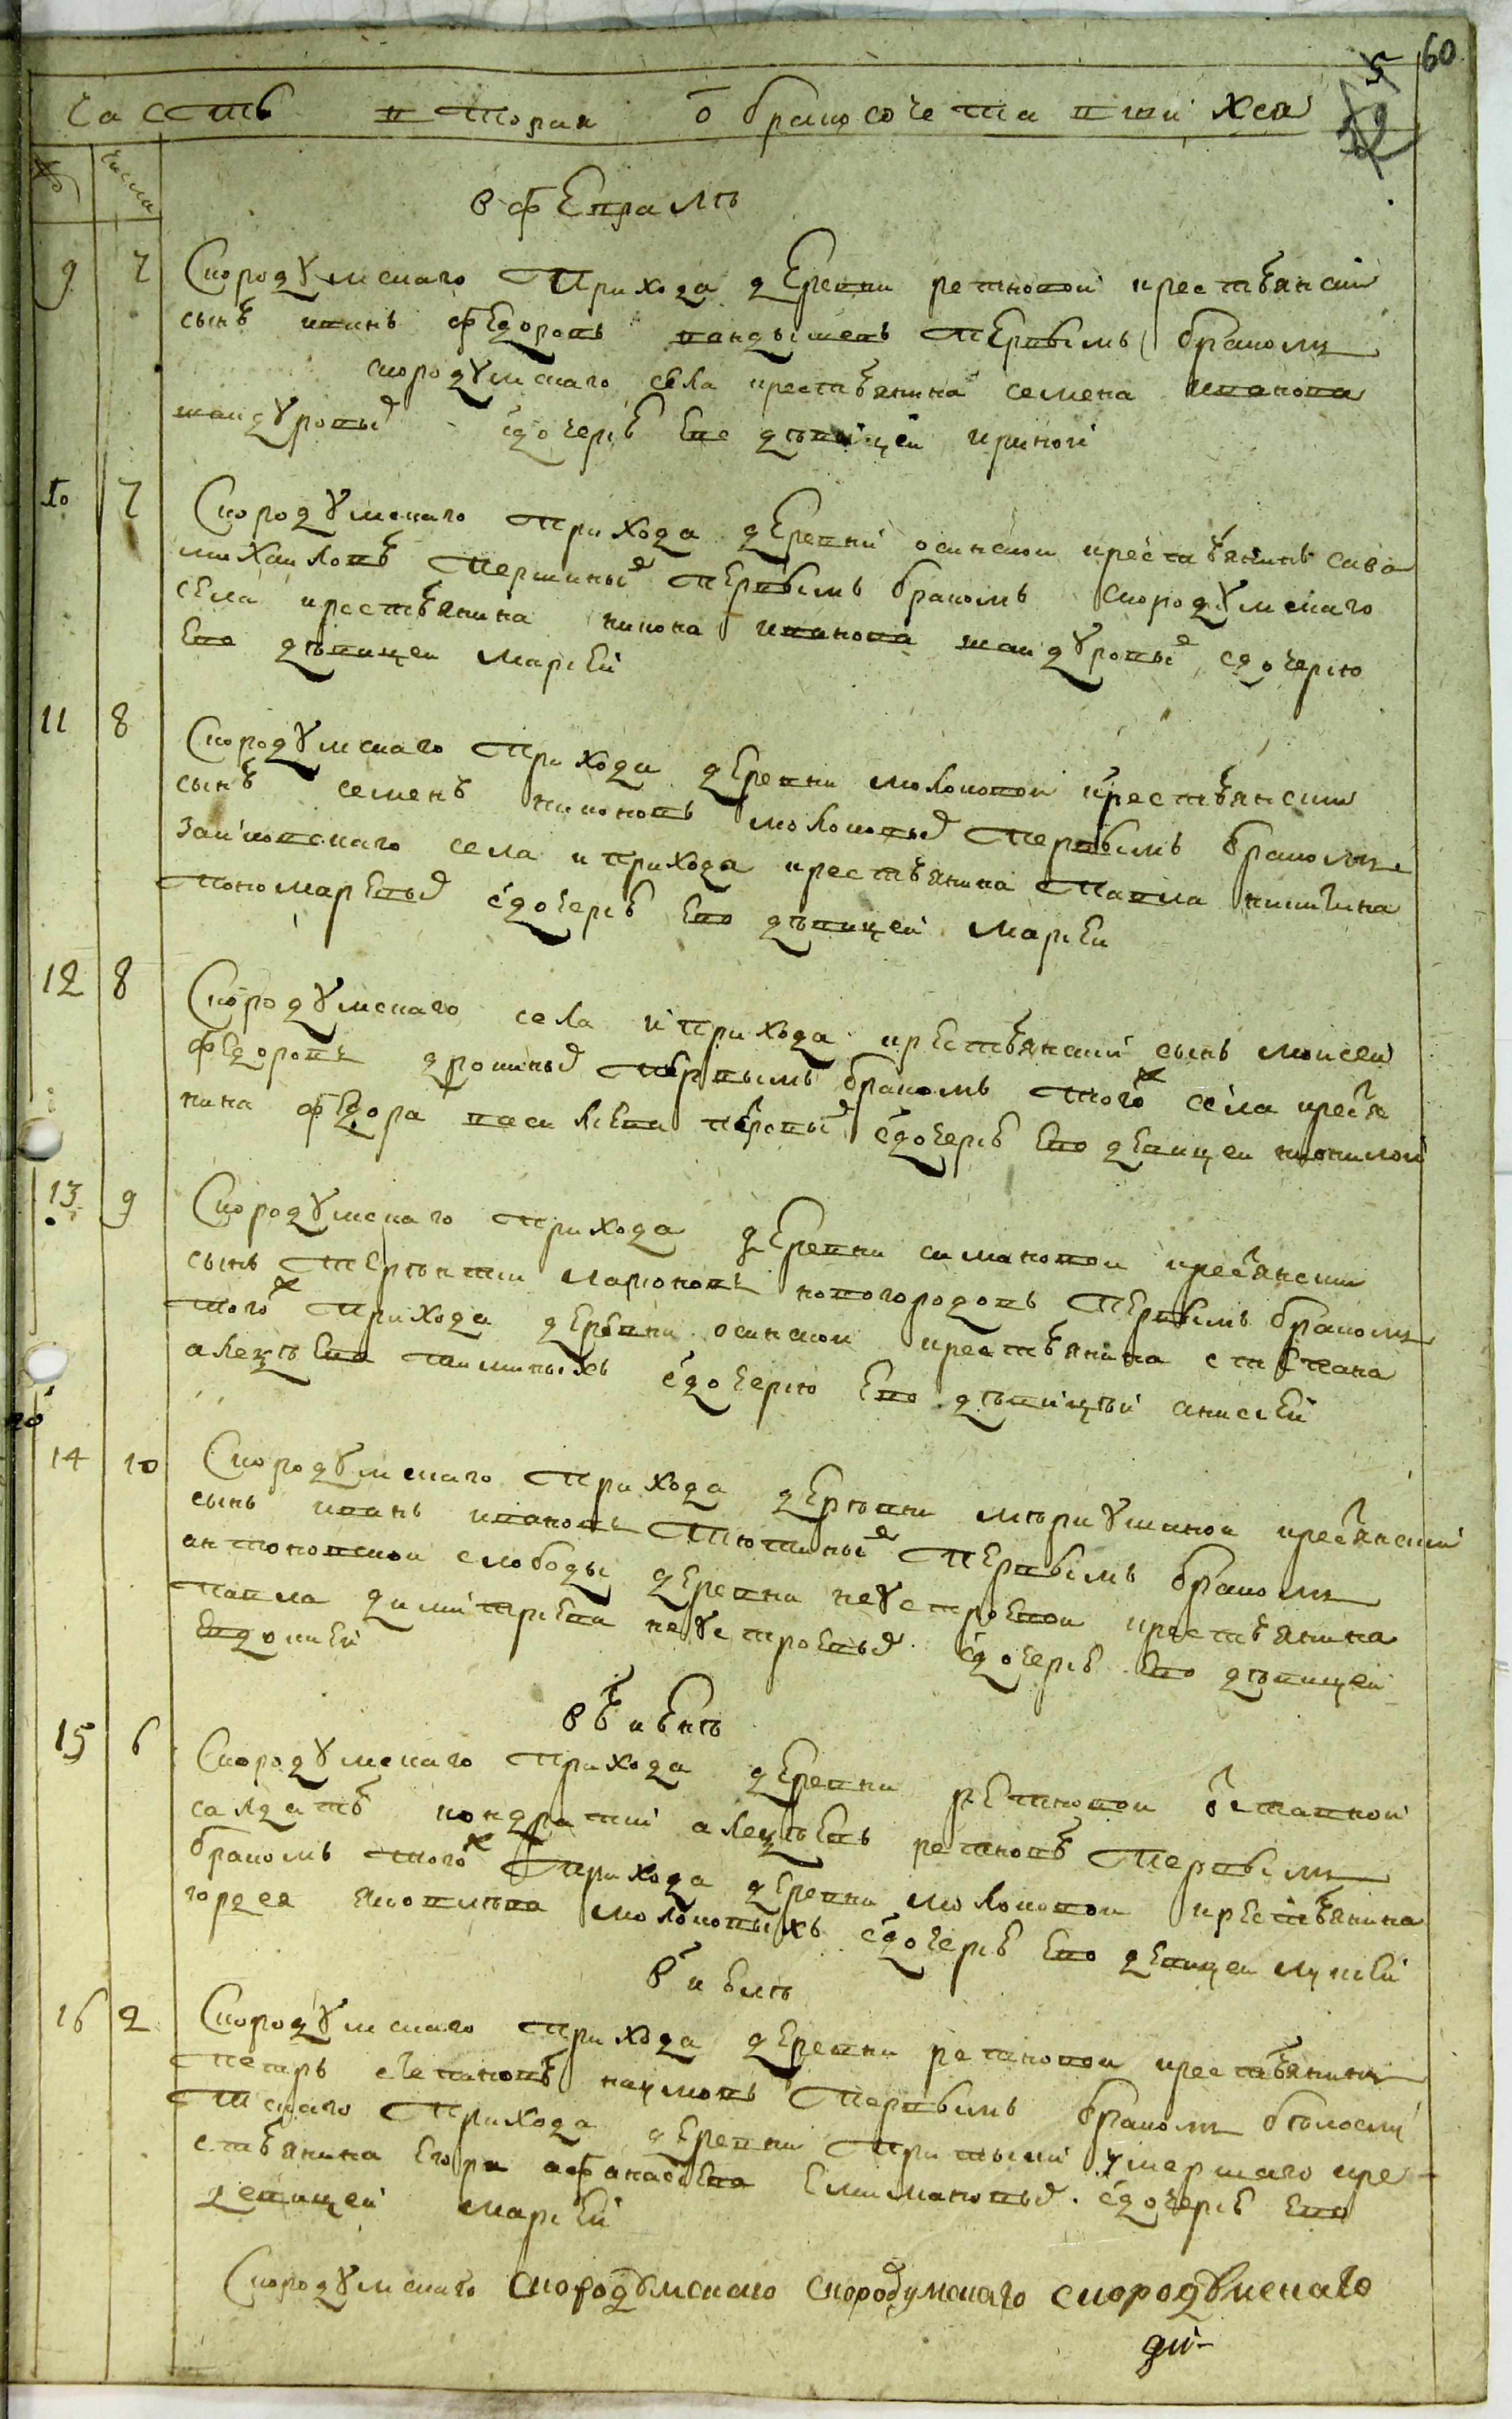 60
5
Часть вторая о бракосочетавшихся
№ числа
в феврале
9 7 Скородумскаго прихода деревни ретновой крестьянской
сынъ иванъ федоровъ первымъ бракомъ
скородумскаго села крестьянина семена иванова
шандуровы с дочерью ево девицей ириной
10 7 Скородумскаго прихода деревни осинской крестьянинъ сава
михаиловъ першиныхъ первымъ бракомъ Скородумскаго
села крестьянина никона иванова шандуровыхъ с дочерию
ево девицеи марьей
11 8 Скородумскаго прихода деревни молоковой крестьянский
сынъ семенъ никоновъ молоковыхъ первымъ бракомъ
зайковскаго села и прихода крестьянина павла никитина
пономаревыхъ с дочерью ево девицей марьеи
12 8 Скородумскаго села и прихода крестьянский сынъ моисей
федоровъ дрокиныхъ первымъ бракомъ того ж села крестья
нина федора васильева с дочерью ево девицеи
13 9 Скородумскаго прихода деревни симановой крестьянский
сынъ терентий ларионовъ новогородовъ первымъ бракомъ
того ж прихода деревни осинской крестьянина степана
алексеева с дочерию ево девицей анисьей
14 10 Скородумскаго прихода деревни мериушиной крестьянский
сынъ иванъ ивановъ тютиныхъ первымъ бракомъ
антоновской слободы деревни неустроевой крестьянина
павла димитриева неустроевыхъ с дочерью ево девицей
евдокией
в июне
15 6 Скородумскаго прихода деревни ретновой отставной
салдатъ кондратий алексеевъ ретновъ первымъ
бракомъ того ж прихода деревни молоковой крестьянина
гордея яковлева молоковыхъ с дочерью ево девицеи лукией
в июле
16 2 Скородумскаго прихода деревни ретновой крестьянинъ
петръ степановъ наумовъ первымъ бракомъ белослу
тскаго прихода деревни умершаго кре
стьянина егора афанасьева с дочерью ево
девицей марьей
Скородумскаго скородумскаго скородумскаго скородумскаго